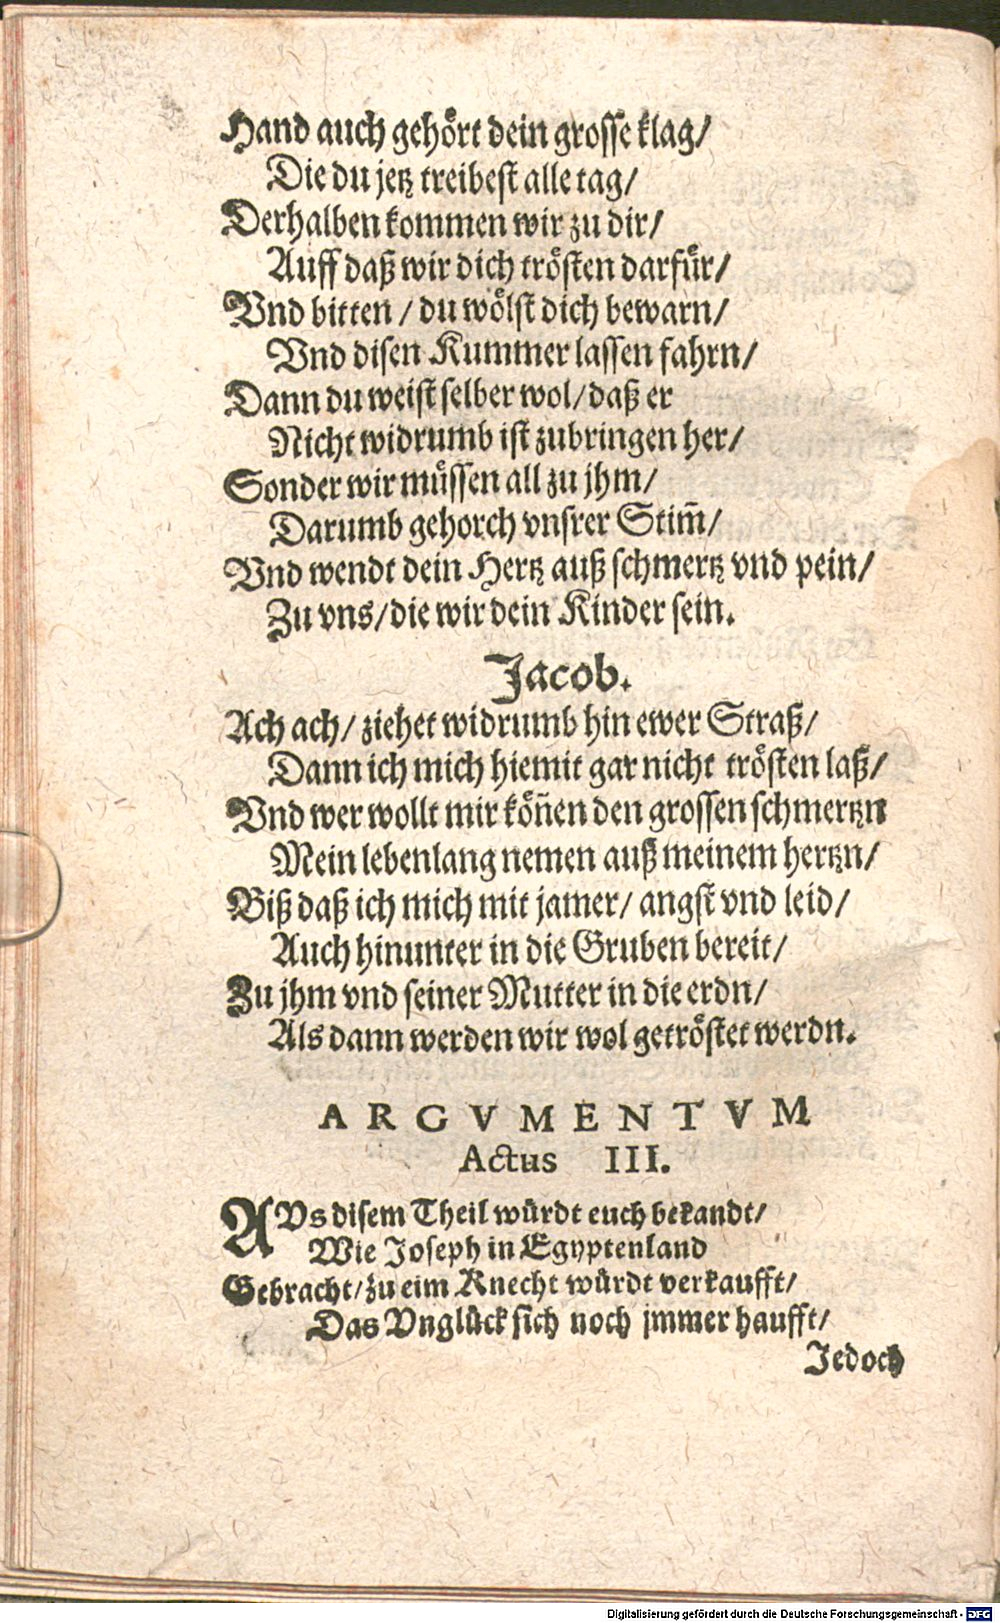 Hand auch gehört dein grosse klag/
Die du jetz treibest alle tag/
Derhalben kommen wir zu dir/
Auff daß wir dich trösten darfür/
Vnd bitten / du wölst dich bewarn/
Vnd disen Kummer lassen fahrn/
Dann du weist selber wol/ daß er
Nicht widrumb ist zubringen her/
Sonder wir müssen all zu jhm/
Darumb gehorch vnsrer Stim̄/
Vnd wendt dein Hertz auß schmertz vnd pein/
Zu vns/ die wir dein Kinder sein.
Jacob.
Ach ach/ ziehet widrumb hin ewer Straß/
Dann ich mich hiemit gar nicht trösten laß/
Vnd wer wollt mir kön̄en den grossen schmertzn
Mein lebenlang nemen auß meinem hertzn/
Biß daß ich mich mit jamer/ angst vnd leid/
Auch hinunter in die Gruben bereit/
Zu jhm vnd seiner Mutter in die erdn/
Als dann werden wir wol getröstet werdn.
ARGVMENTVM
Actus III.
AVs disem Theil würdt euch bekandt/
Wie Joseph in Egyptenland
Gebracht/ zu eim Knecht würdt verkaufft/
Das Vnglück sich noch jmmer haufft/
Jedoch
Digitalisierung gefördert durch die Deutsche Forschungsgemeinschaft - DFG